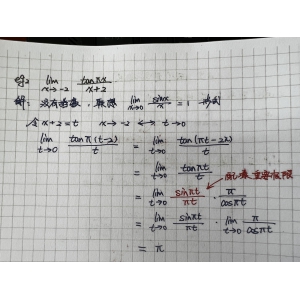 例2 lim x→-2 tanπx/x+2
解: 没有函数, 联想 lim x→0 sinx/x = 1 形式
令 x+2=t x→-2 ↔ t→0
lim t→0 tanπ(t-2)/t = lim t→0 tan(πt-2π)/t
= lim t→0 tanπt/t
= lim t→0 sinπt/πt · π/cosπt 重要极限
= lim t→0 sinπt/πt · lim t→0 π/cosπt
= π